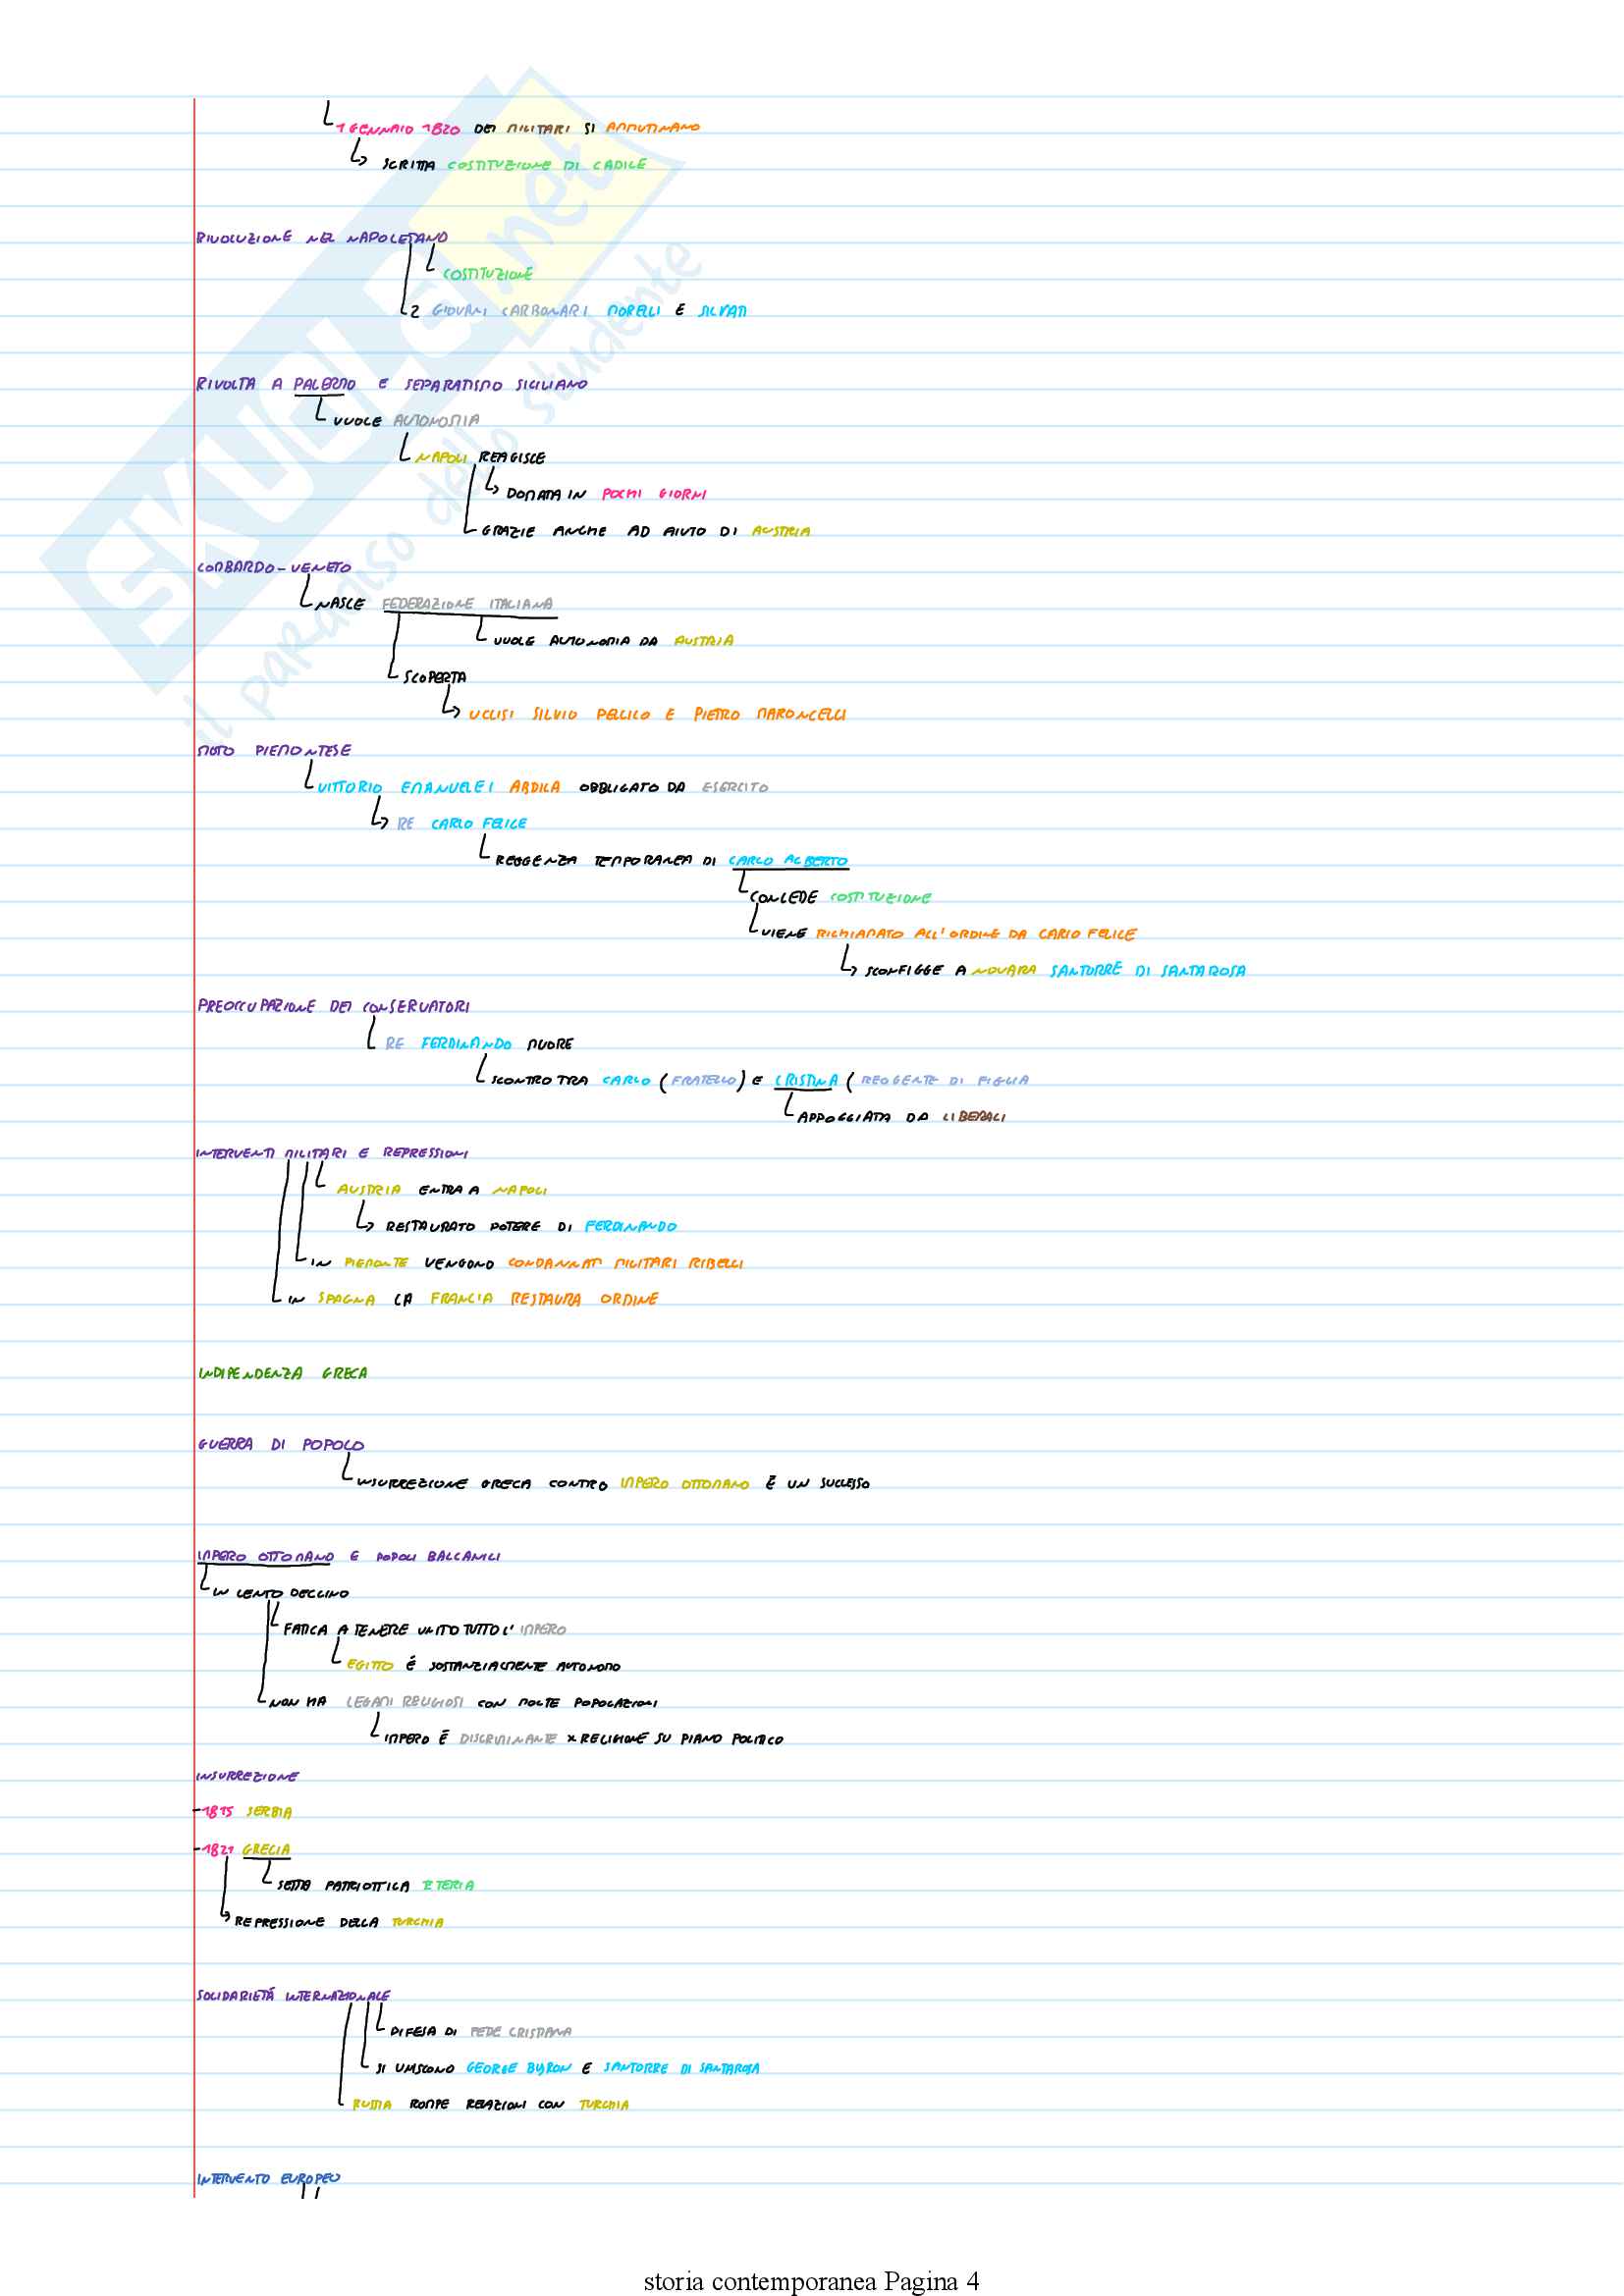 1 GENNAIO 1820 DEI MILITARI SI AMMUTINANO
SCRITTA COSTITUZIONE DI CADICE
RIVOLUZIONE NEL NAPOLETANO
COSTITUZIONE
2 GIOVANI CARBONARI MORELLI E SILVATI
RIVOLTA A PALERMO E SEPARATISMO SICILIANO
VUOLE AUTONOMIA
NAPOLI REAGISCE
DOMATA IN POCHI GIORNI
GRAZIE ANCHE AD AIUTO DI AUSTRIA
LOMBARDO-VENETO
NASCE FEDERAZIONE ITALIANA
VUOLE AUTONOMIA DA AUSTRIA
SCOPERTA
UCCISI SILVIO PELLICO E PIETRO MARONCELLI
MOTO PIEMONTESE
VITTORIO EMANUELE I ABDICA OBBLIGATO DA ESERCITO
RE CARLO FELICE
REGGENZA TEMPORANEA DI CARLO ALBERTO
CONCEDE COSTITUZIONE
VIENE RICHIAMATO ALL'ORDINE DA CARLO FELICE
SCONFIGGE A NOVARA SANTORRE DI SANTAROSA
PREOCCUPAZIONE DEI CONSERVATORI
RE FERDINANDO MUORE
SCONTRO TRA CARLO (FRATELLO) E CRISTINA (REGGENTE DI FIGLIA
APPOGGIATA DA LIBERALI
INTERVENTI MILITARI E REPRESSIONI
AUSTRIA ENTRA A NAPOLI
RESTAURATO POTERE DI FERDINANDO
IN PIEMONTE VENGONO CONDANNATI MILITARI RIBELLI
IN SPAGNA LA FRANCIA RESTAURA ORDINE
INDIPENDENZA GRECA
GUERRA DI POPOLO
INSURREZIONE GRECA CONTRO IMPERO OTTOMANO È UN SUCCESSO
IMPERO OTTOMANO E POPOLI BALCANICI
IN LENTO DECLINO
FATICA A TENERE UNITO TUTTO L'IMPERO
EGITTO É SOSTANZIALMENTE AUTONOMO
NON HA LEGAMI RELIGIOSI CON MOLTE POPOLAZIONI
IMPERO É DISCRIMINANTE X RELIGIONE SU PIANO POLITICO
INSURREZIONE
-1815 SERBIA
-1821 GRECIA
SETTA PATRIOTTICA ETERIA
REPRESSIONE DELLA TURCHIA
SOLIDARIETÁ INTERNAZIONALE
DIFESA DI FEDE CRISTIANA
SI UNISCONO GEORGE BYRON E SANTORRE DI SANTAROSA
RUSSIA ROMPE RELAZIONI CON TURCHIA
INTERVENTO EUROPEO
storia contemporanea Pagina 4
SKUOLA.net
il paradiso dello studente